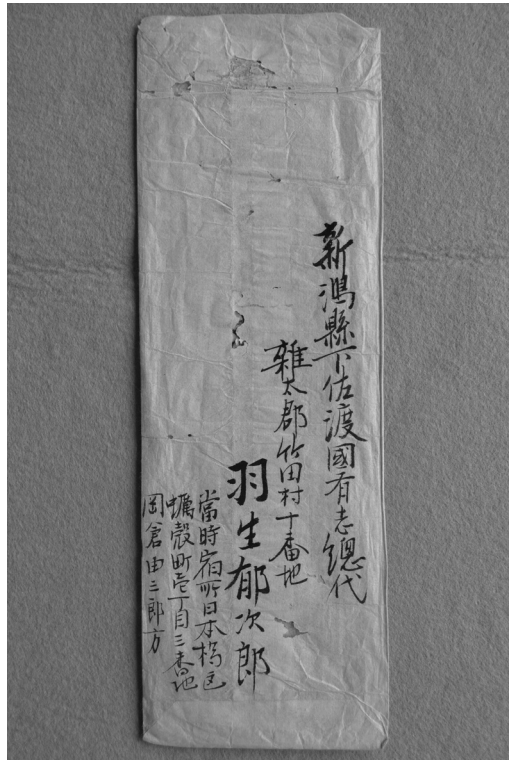 新潟縣下佐渡國有志總代
雑太郡竹田村十番地
羽生郁次郎
當時宿所日本橋区
蠣殻町壱丁目三番地
岡倉由三郎方